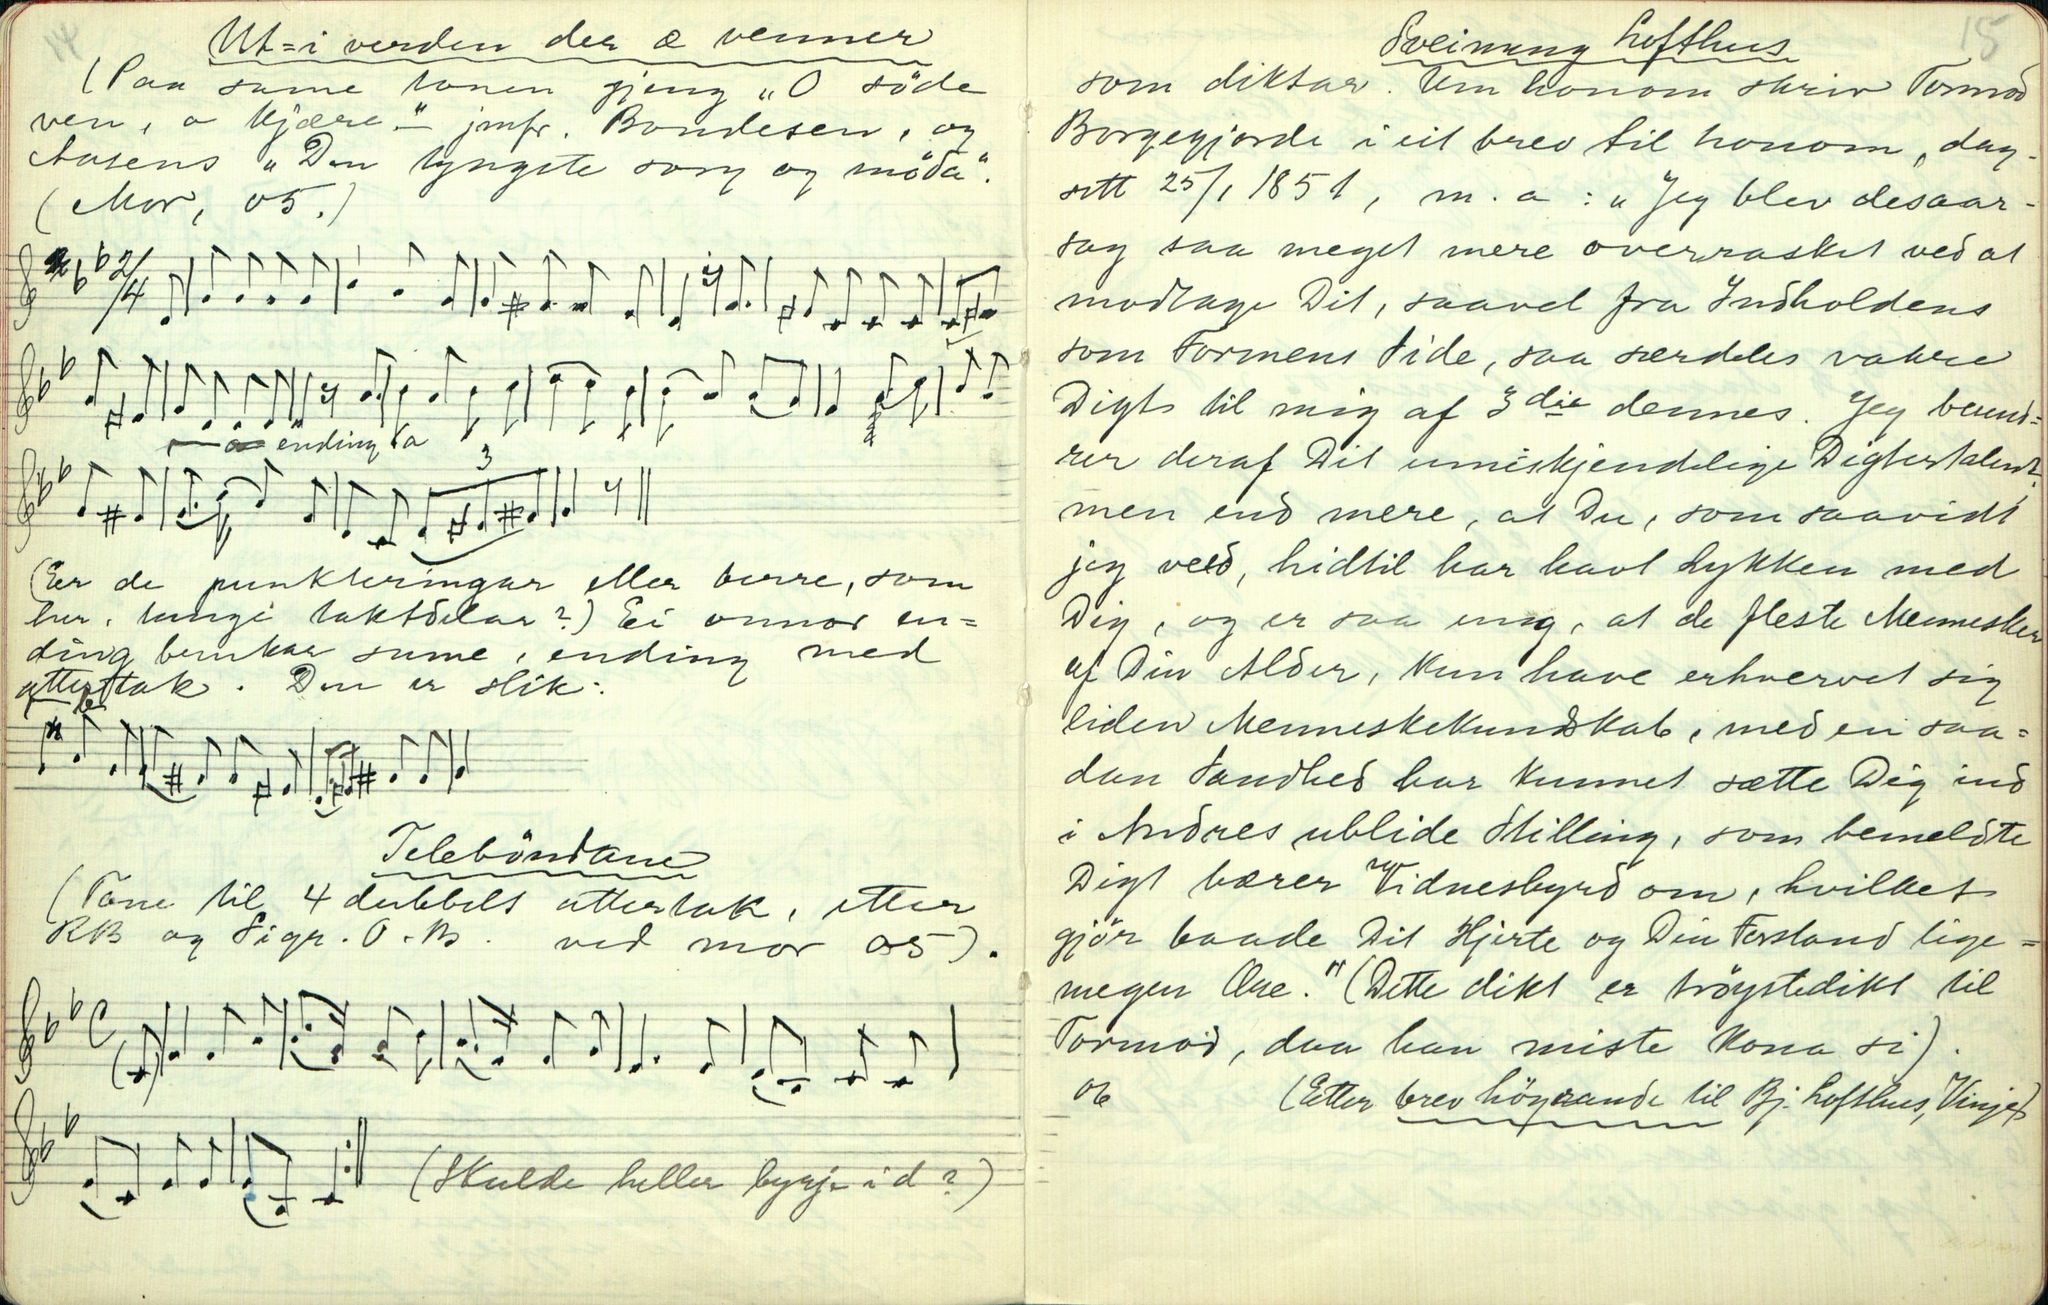 14
Ut=i verden der æ venner
(Paa same tonen gjeng „O söde
ven, o kjære"- jmfr. Bondesen, og
Aasens „Den tyngste sorg og möda".
(Mor, 05.)
2/4
ending a
3
(Er de punkteringar eller berre, som
her, tunge taktdelar?) Ei onnor en=
ding brukar same, ending med
attertak. Den er slik:
Teleböndane
(Tone til 4 dubbelt attertak, etter
RB og Sigr. O. B. ved mor 05).
C
(Skulde heller byrje i d?)
15
Sveinung Lofthus
som diktar. Um honom skriv Tormod
Borgegjorde i eit brev til honom, dag-
sett 25/1 1851, m. a: „Jeg blev desaar-
sag saa meget mere overrasket ved at
modtage Dit, saavel fra Indholdens
som Formens Side, saa særdeles vakre
Digt til mig af 3die dennes. Jeg beund=
rer deraf Dit umiskjendelige Digtertalent,
men end mere, at Du, som saavidt
jeg veed, hidtil har havt Lykken med
Dig, og er saa ung, at de fleste Mennesker
af Din Alder, kun have erhvervet sig
liden Menneskekundskab, med en saa=
dan Sandhed har kunnet sætte Dig ind
i Andres ublide Stilling, som bemeldte
Digt bærer Vidnesbyrd om, hvilket
gjör baade Dit Hjerte og Din Forstand lige=
megen Ære." (Dette dikt er tröystedikt til
Tormod, daa han miste kona si).
06 (Etter brev höyrande til Bj. Lofthus, Vinje)